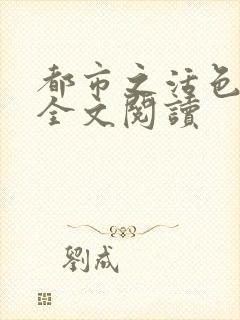 都市之活色
全文閱讀
劉成